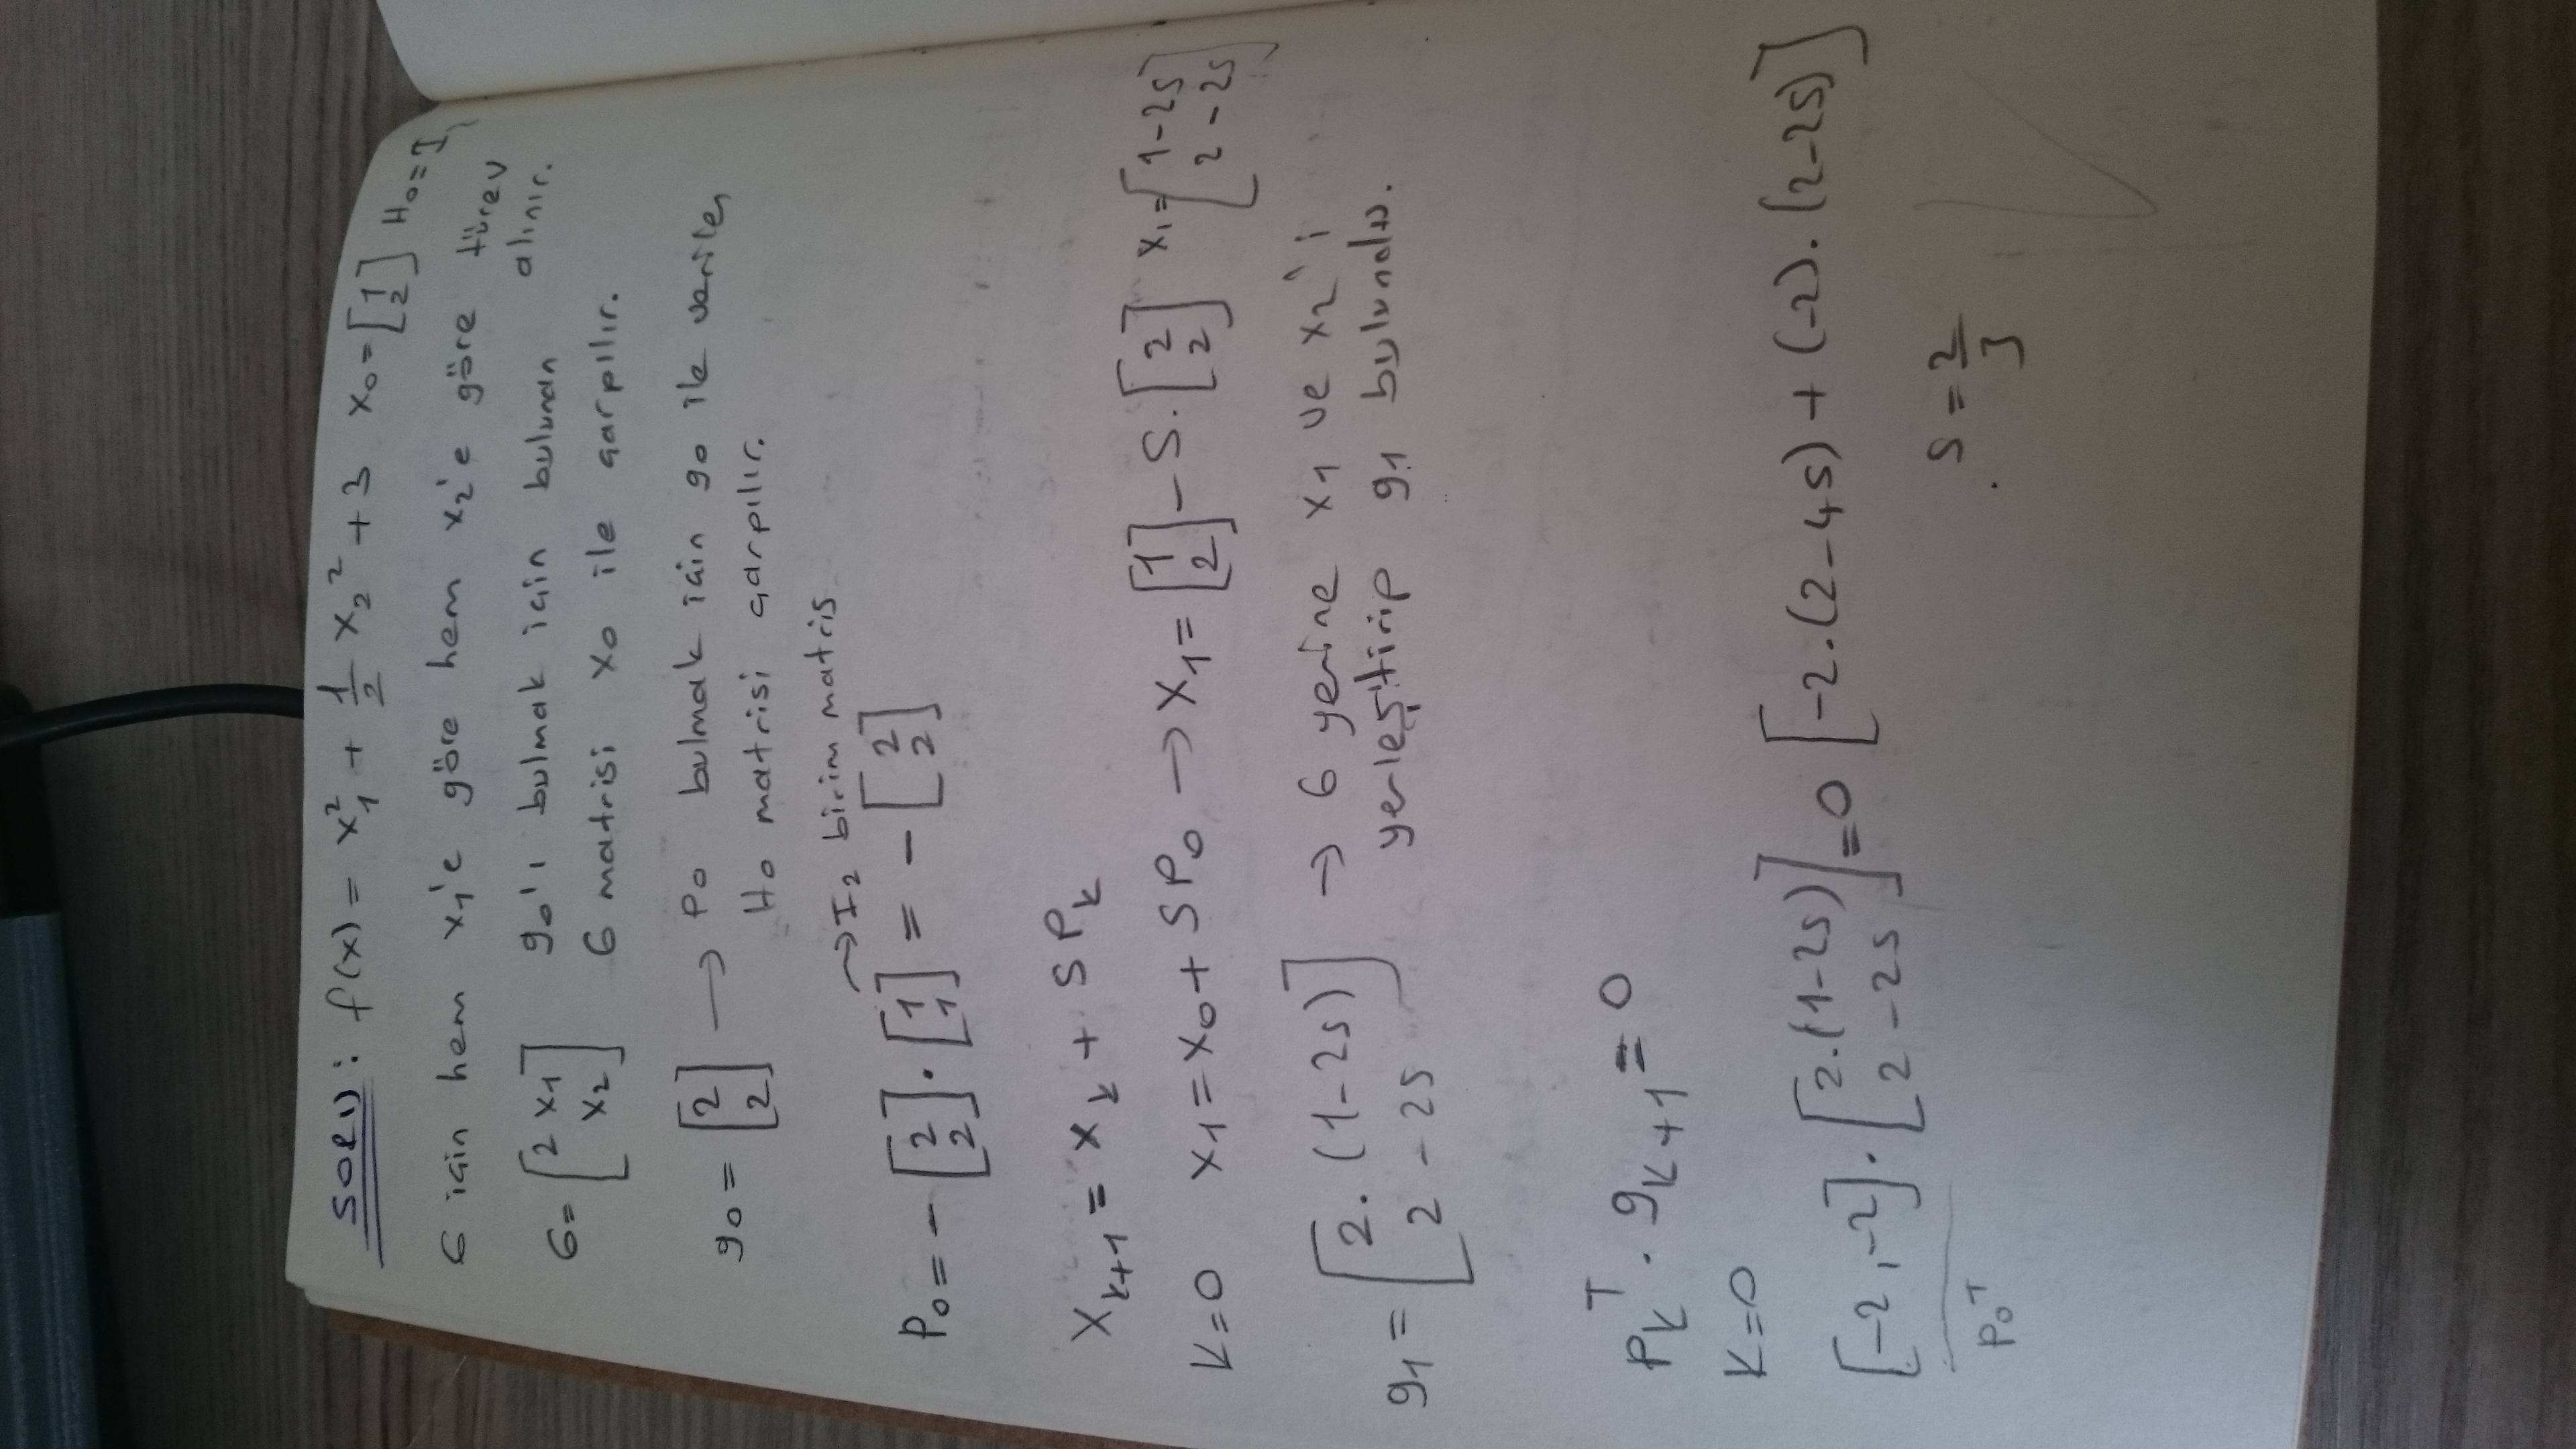 SORU: f(x) = x₁² + 1/2 x₂² + 3 x₀ = [1 2] H₀ = I
G için hem x₁'e göre hem x₂'e göre türev alınır.
G = [2x₁ x₂] g₀'ı bulmak için bulunan
G matrisi x₀ ile çarpılır.
g₀ = [2 2] → P₀ bulmak için g₀ ile verilen
H₀ matrisi çarpılır.
→ I₂ birim matris
P₀ = - [2 2] . [1 1] = - [2 2]
x_{k+1} = x_k + S P_k
K=0 x₁ = x₀ + S P₀ → x₁ = [1 2] - S. [2 2] x₁ = [1-2s 2-2s]
g₁ = [2.(1-2s) 2-2s] → G yerine x₁ ve x₂'i
yerleştirip g₁ bulundu.
P_k^T . g_{k+1} = 0
K=0
[-2,-2] . [2.(1-2s) 2-2s] = 0 [-2.(2-4s) + (-2).(2-2s)]
P₀^T
S = 2/3